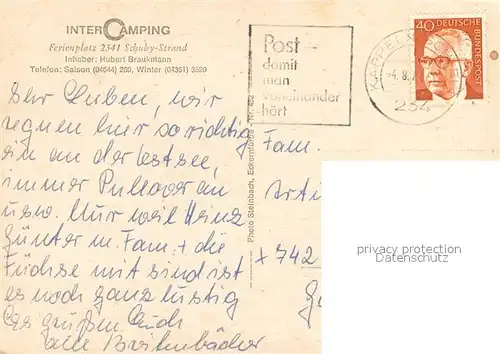 INTER CAMPING
Ferienplatz 2341 Schuby-Strand
Inhaber: Hubert Braukmann
Telefon: Saison (04644) 260, Winter (04351) 3520
Ihr Lieben, wir
regnen hier so richtig
ein an der Ostsee,
immer Pullover an
usw. Nur weil Heinz
Günter m. Fam. + die
Füchse mit sind ist
es noch ganz lustig
Es grüßen Euch
alle Breitenbächer
Photo Steinbach, Eckernförde
Post -
damit
man
voneinander
hört
KAPPELN
-4.8.
234
40 DEUTSCHE
BUNDESPOST
Fam.
742
privacy protection
Datenschutz